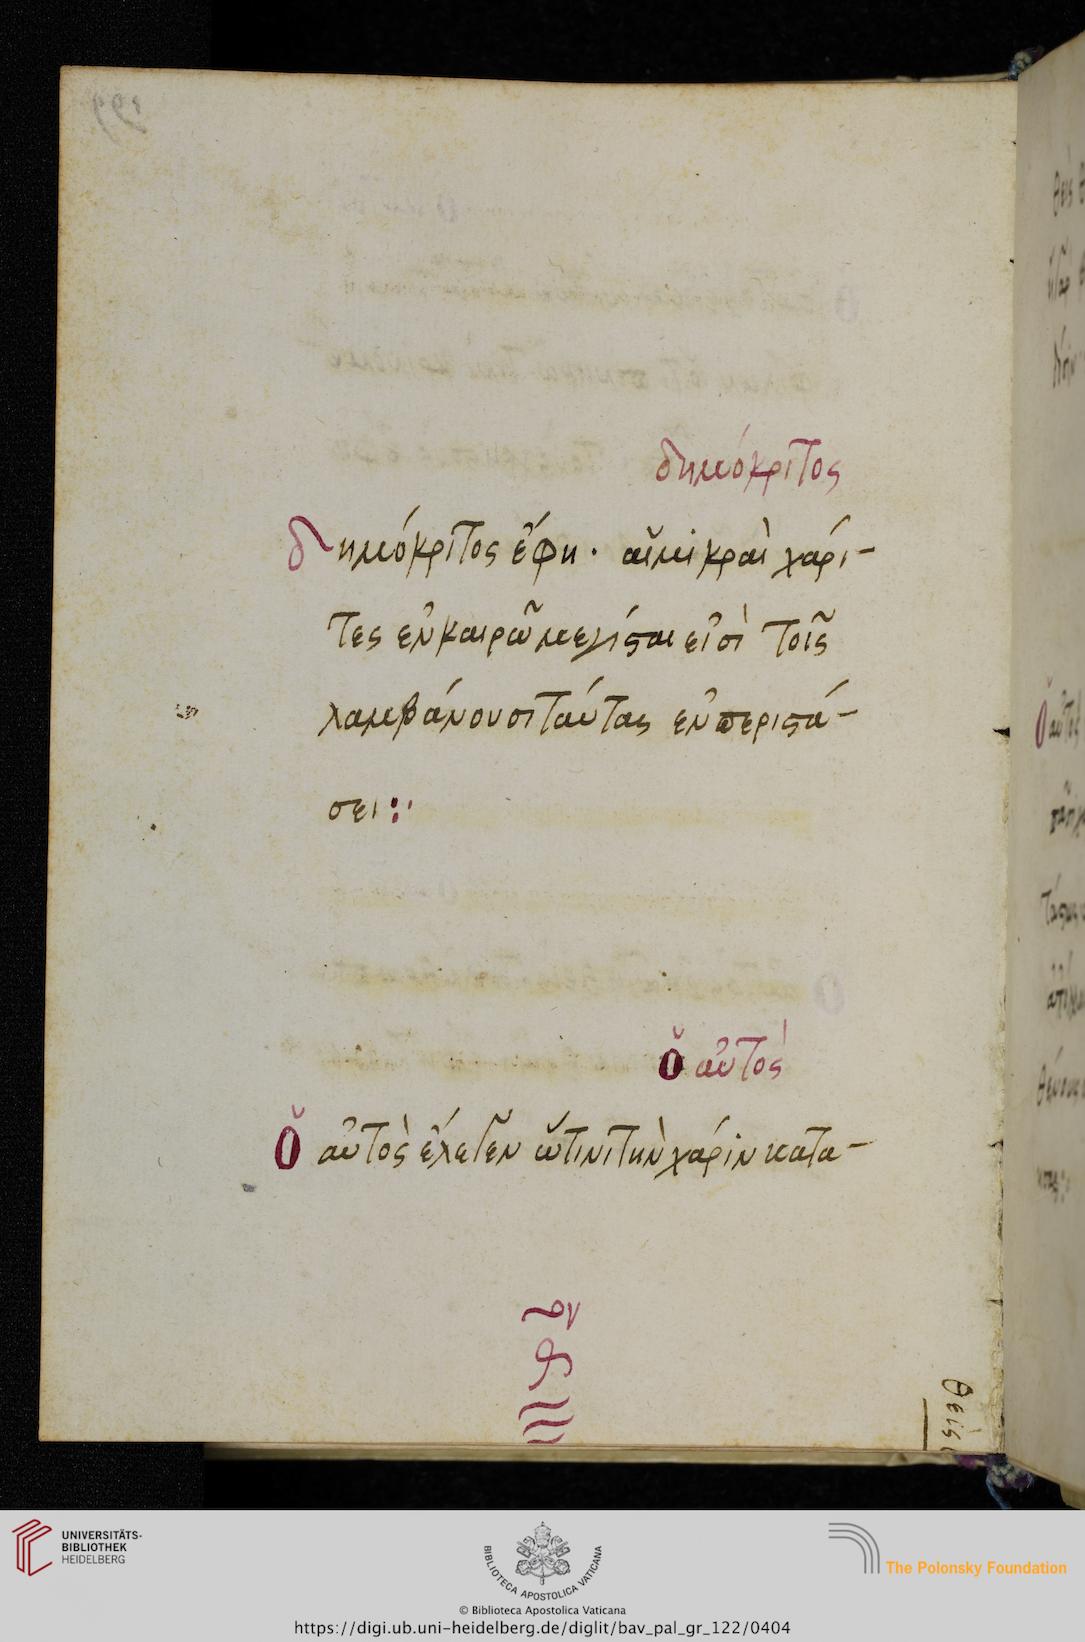 δημόκριτος
δημόκριτος ἔφη · αἱ μικραὶ χάρι-
τες ἐν καιρῶ μεγίσται εἰσὶ τοῖς
λαμβάνουσι ταύτας ἐν περιστά-
σει :·
ὁ αὐτός
ὁ αὐτὸς ἔλεγεν ὥτινι τὴν χάριν κατα-
θείς
UNIVERSITÄTS-
BIBLIOTHEK
HEIDELBERG
BIBLIOTECA APOSTOLICA VATICANA
The Polonsky Foundation
© Biblioteca Apostolica Vaticana
https://digi.ub.uni-heidelberg.de/diglit/bav_pal_gr_122/0404